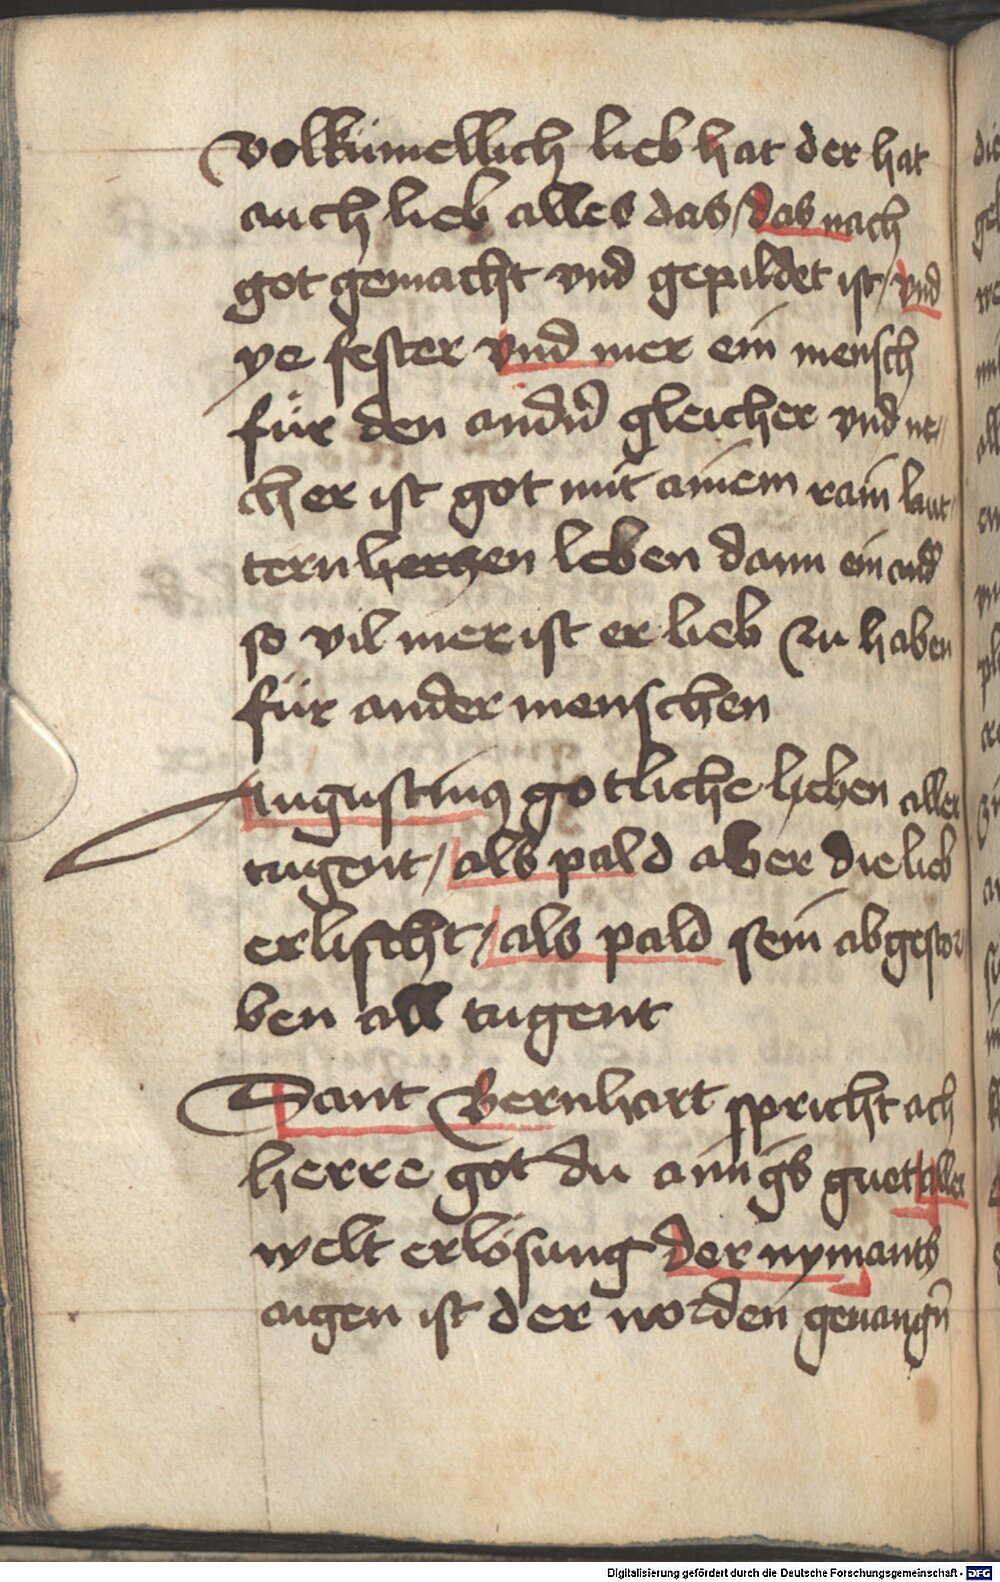 volkumellich lieb hat der hat
auch lieb alles das / das nach
got gemacht vnd gepildet ist / vnd
ye fester vnd mer ein mensch
für den andern gleicher vnd ne/
cher ist got mit ainem rain laut/
tern herczen leben dann ein and
so vil mer ist er lieb zu haben
für ander menschen
Augustinus gotliche lieben aller
tugent / als pald aber die lieb
erlischt / als pald sein abgestor/
ben all tugent
Sant Bernhart spricht ach
herre got du ainigs guet / aller
welt erlösung der nymants
aigen ist der worden geuangn
Digitalisierung gefördert durch die Deutsche Forschungsgemeinschaft - DFG